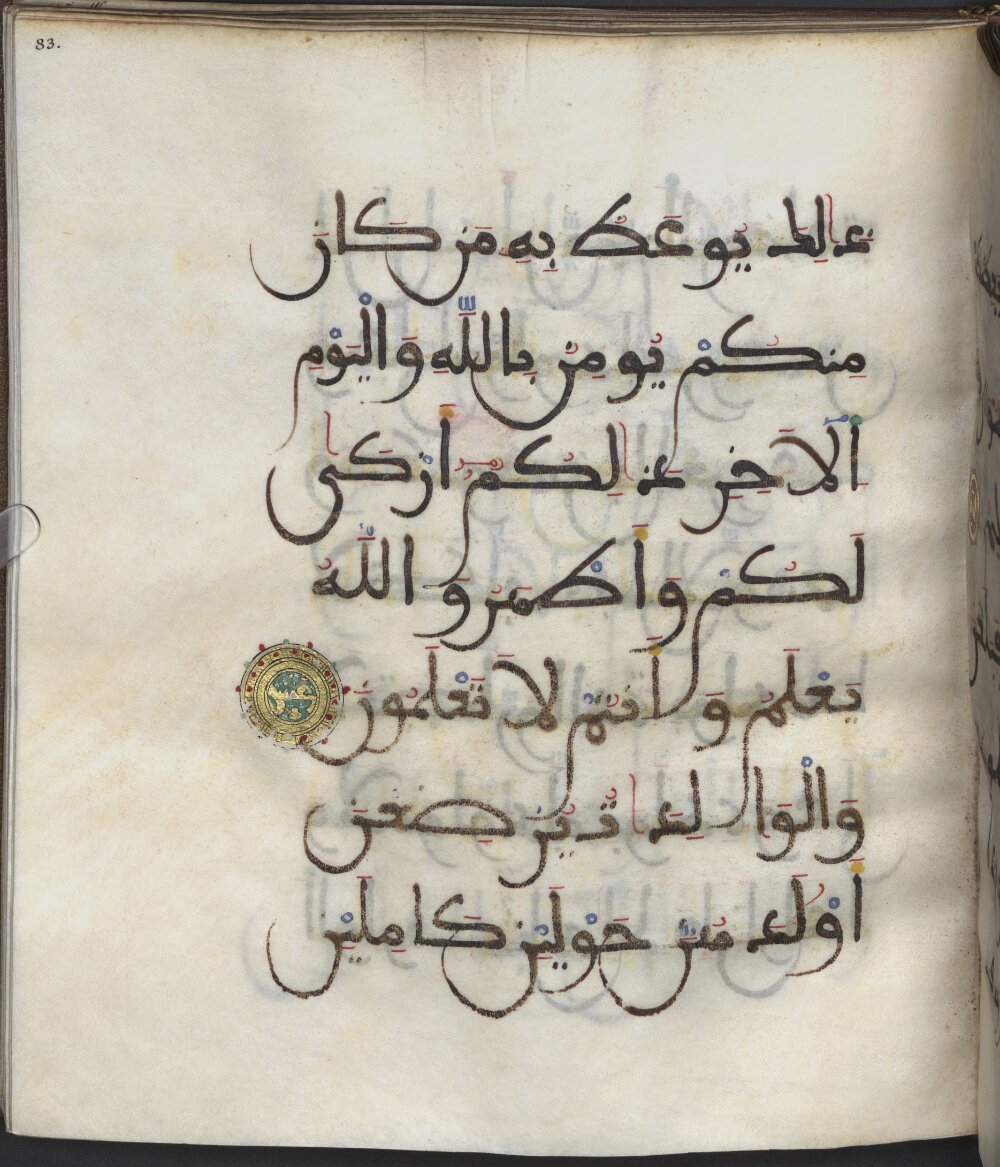 83.
ذَٰلِكَ يُوعَظُ بِهِ مَن كَانَ
مِنكُمْ يُومِنُ بِاللَّهِ وَالْيَوْمِ
اَلَاخِرِ ذَٰلِكُمُ أَزْكَىٰ
لَكُمْ وَأَطْهَرُ وَاللَّهُ
يَعْلَمُ وَأَنتُمْ لَا تَعْلَمُونَ
وَالْوَالِدَاتُ يُرْضِعْنَ
أَوْلَادَهُنَّ حَوْلَيْنِ كَامِلَيْنِ